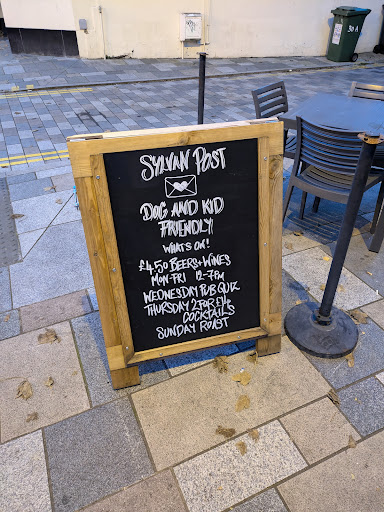 SYLVAN POST
DOG AND KID
FRIENDLY
WHATS ON!
£4.50 BEERS+WINES
MON-FRI 12-7PM
WEDNESDAY PUB QUIZ
THURSDAY 2 FOR £14
COCKTAILS
SUNDAY ROAST
30 A